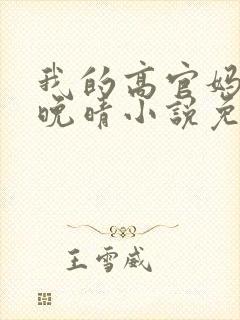 我的高官妈
晚晴小说免
王雪威